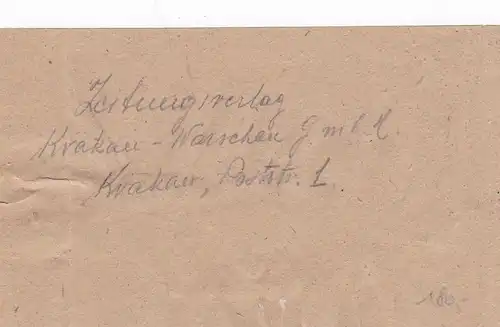 Zeitungsverlag
Krakau-Warschau G.m.b.H.
Krakau, Poststr. 1.
160,-